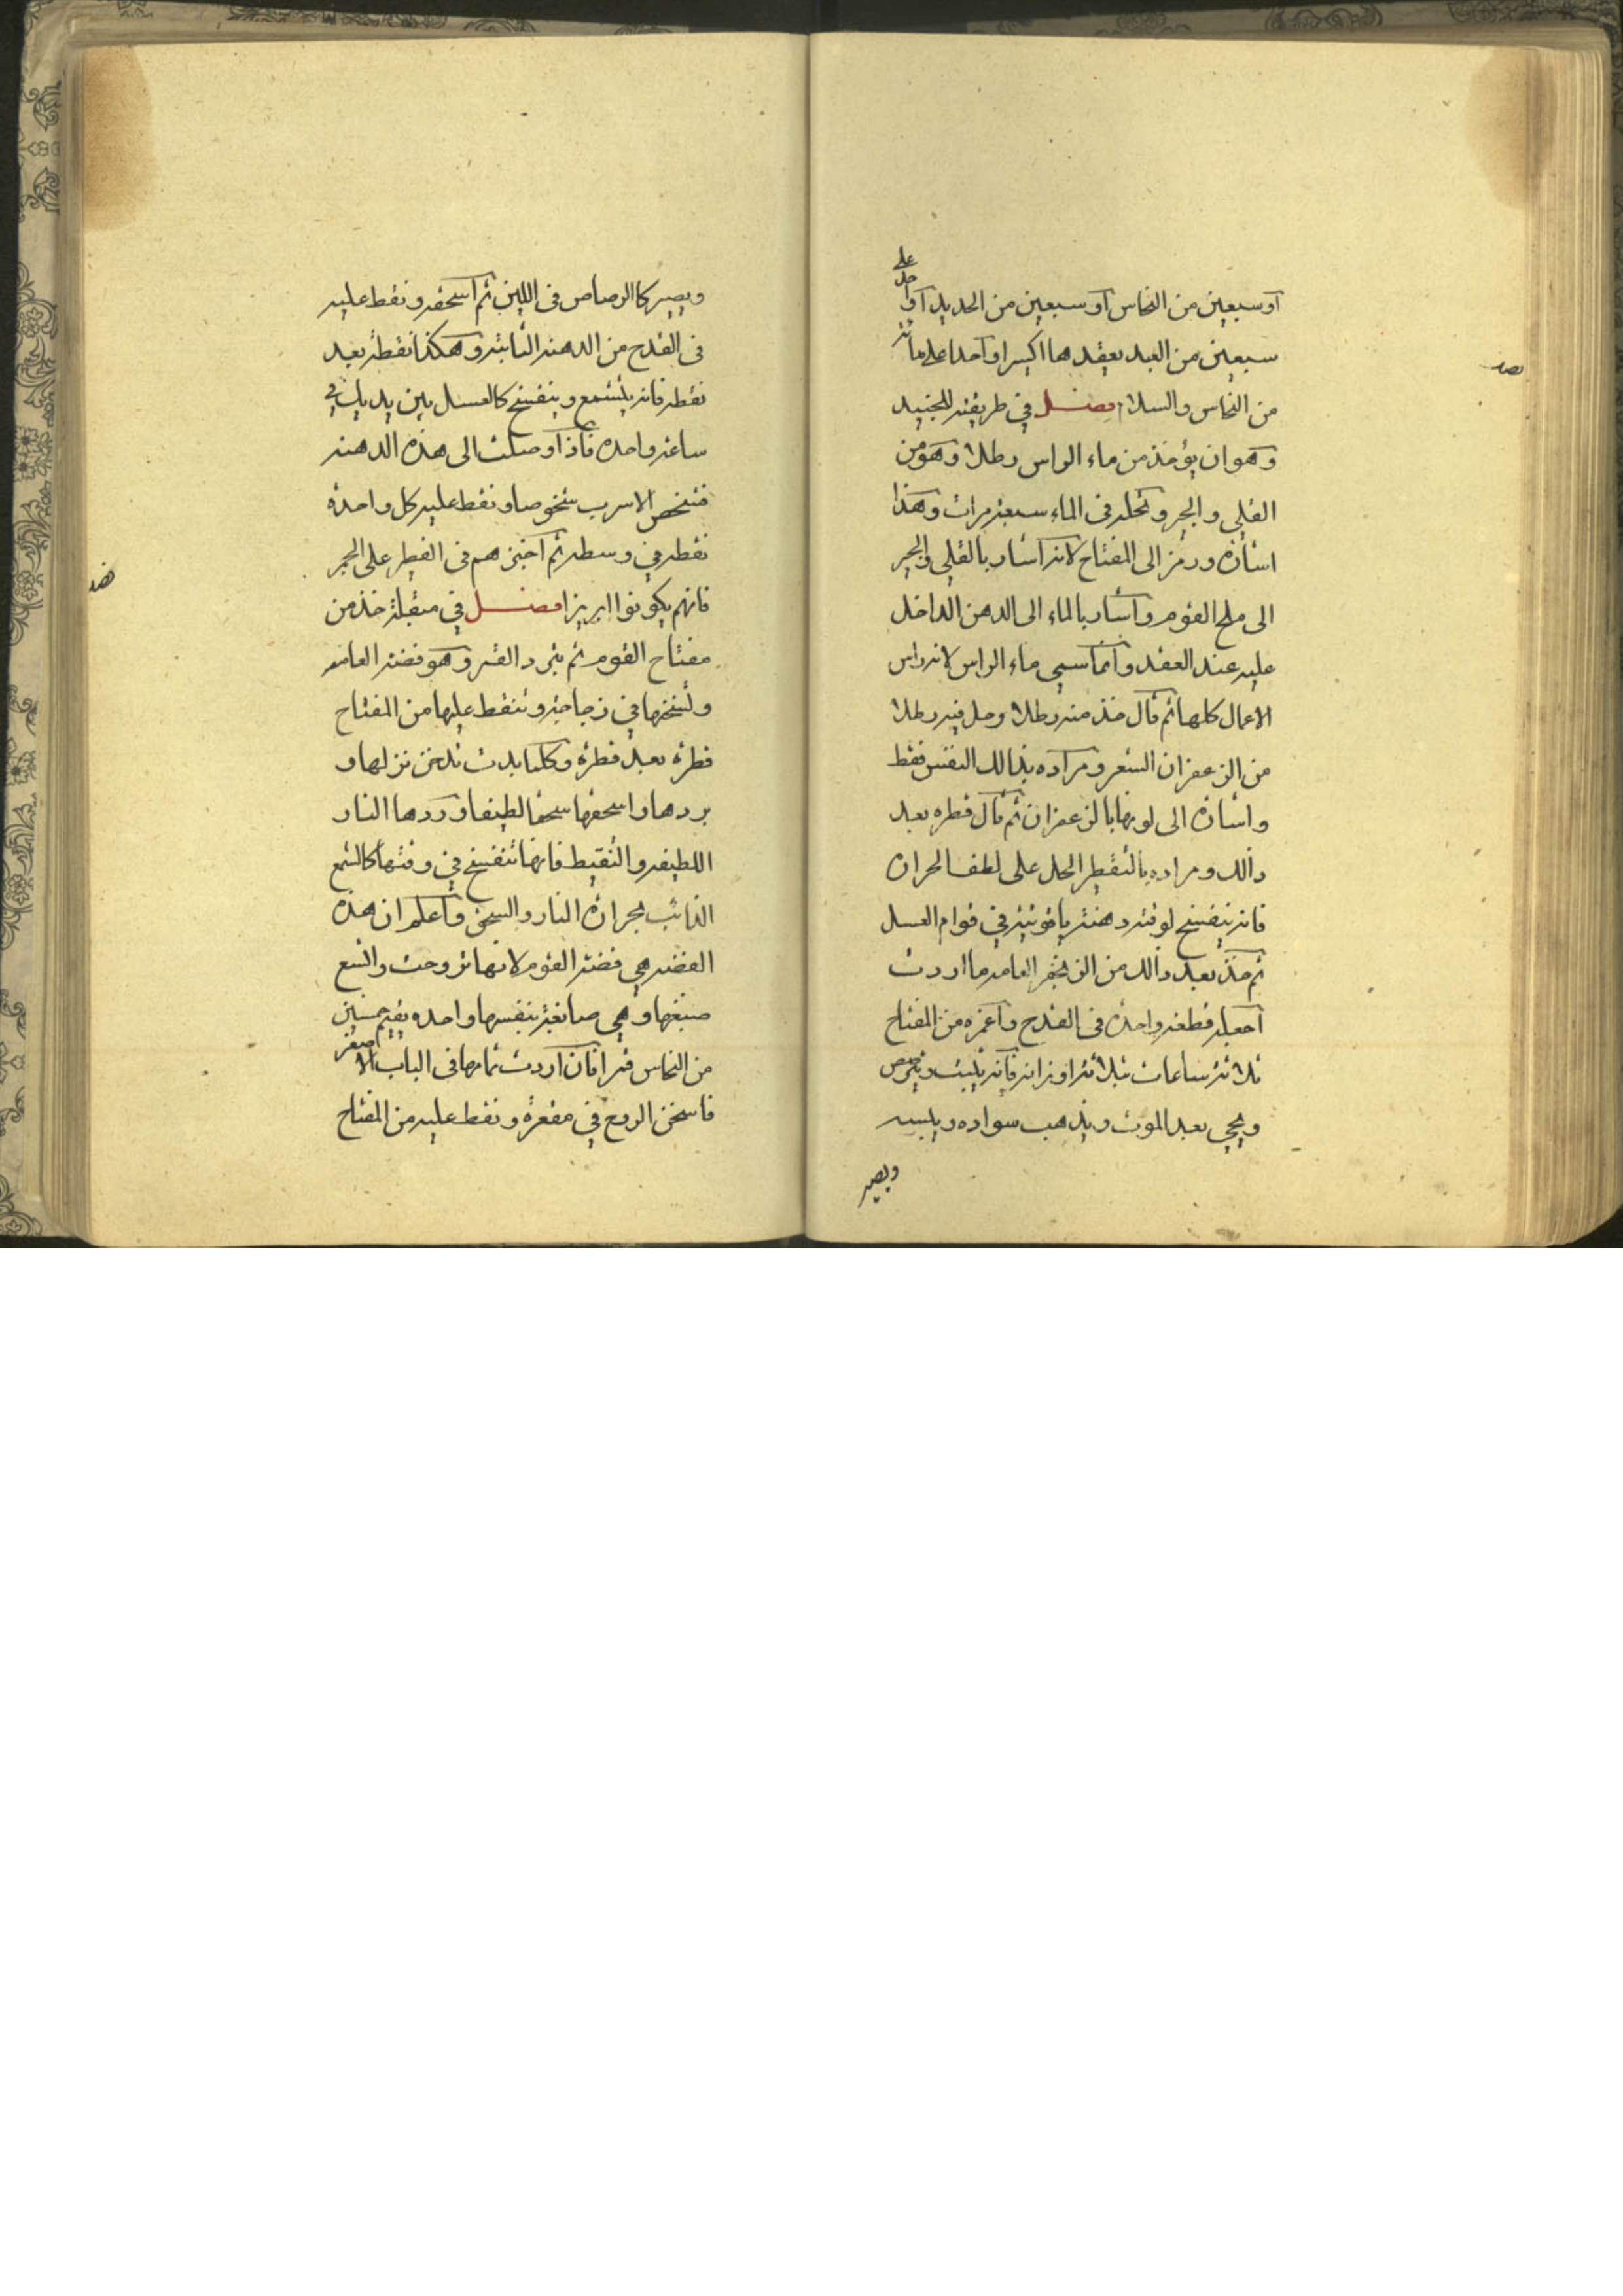 او سبعين من النحاس او سبعين من الحديد او واحد على
سبعين من العبد يعقدها اكسيرا واحدا على مائة
من النحاس والسلام فصل في طريقته للجنيد
وهو ان يؤخذ من ماء الراس رطلا وهو من
القلي والجير وتحله في الماء سبعة مرات وهذا
اشارة ورمز الى المفتاح لانه اشار بالقلي والجير
الى ملح القوم واشار بالماء الى الدهن الداخل
عليه عند العقد وانما سمي ماء الراس لانه راس
الاعمال كلها ثم قال خذ منه رطلا وحل فيه رطلا
من الزعفران الشعر ومراده بذالك النفس فقط
واشارة الى لونها بالزعفران ثم قال قطره بعد
ذالك ومراده بالتقطير الحل على لطف الحرارة
فانه ينفسخ لوقته دهنة ياقوتية في قوام العسل
ثم خذ بعد ذالك من الزيبق العامه ما اردت
اجعله قطعة واحدة في القدح واغمره من المفتاح
ثلاثة ساعات بثلاثة اوزانه فانه يثبت
ويحيى بعد الموت ويذهب سواده ويلبسه
ويصير
ويصير كالرصاص في اللين ثم اسحقه ونقط عليه
في القدح من الدهنة الثابتة وهكذا نقطة بعد
نقطه فانه يتشمع وينفسخ كالعسل بين يديك في
ساعة واحدة فاذا وصلت الى هذه الدهنه
فشخص الاسرب شخوصا ونقط عليه كل واحدة
نقطه في وسطه ثم اخبزهم في الفطير على الجمر
فانهم يكونوا ابريزا فصل في مثقلة خذ من
مفتاح القوم ثم تبرد القمر وهو فضة العامه
وتسخنها في زجاجة وتنقط عليها من المفتاح
قطرة بعد قطرة وكلما بدت تدخن نزلها و
بردها واسحقها سحقا لطيفا وردها النار
اللطيفه والتقيط فانها تنفسخ في وقتها كالشمع
الذائب بحرارة النار والسحق واعلم ان هذه
الفضه هي فضة القوم لانها تروحت واتسع
صبغها وهي صابغة بنفسها واحده تقيم خمسين
من النحاس قمرا فان اردت تمامها في الباب الاصفر
فاسخن الروح في مقعرة ونقط عليه من المفتاح